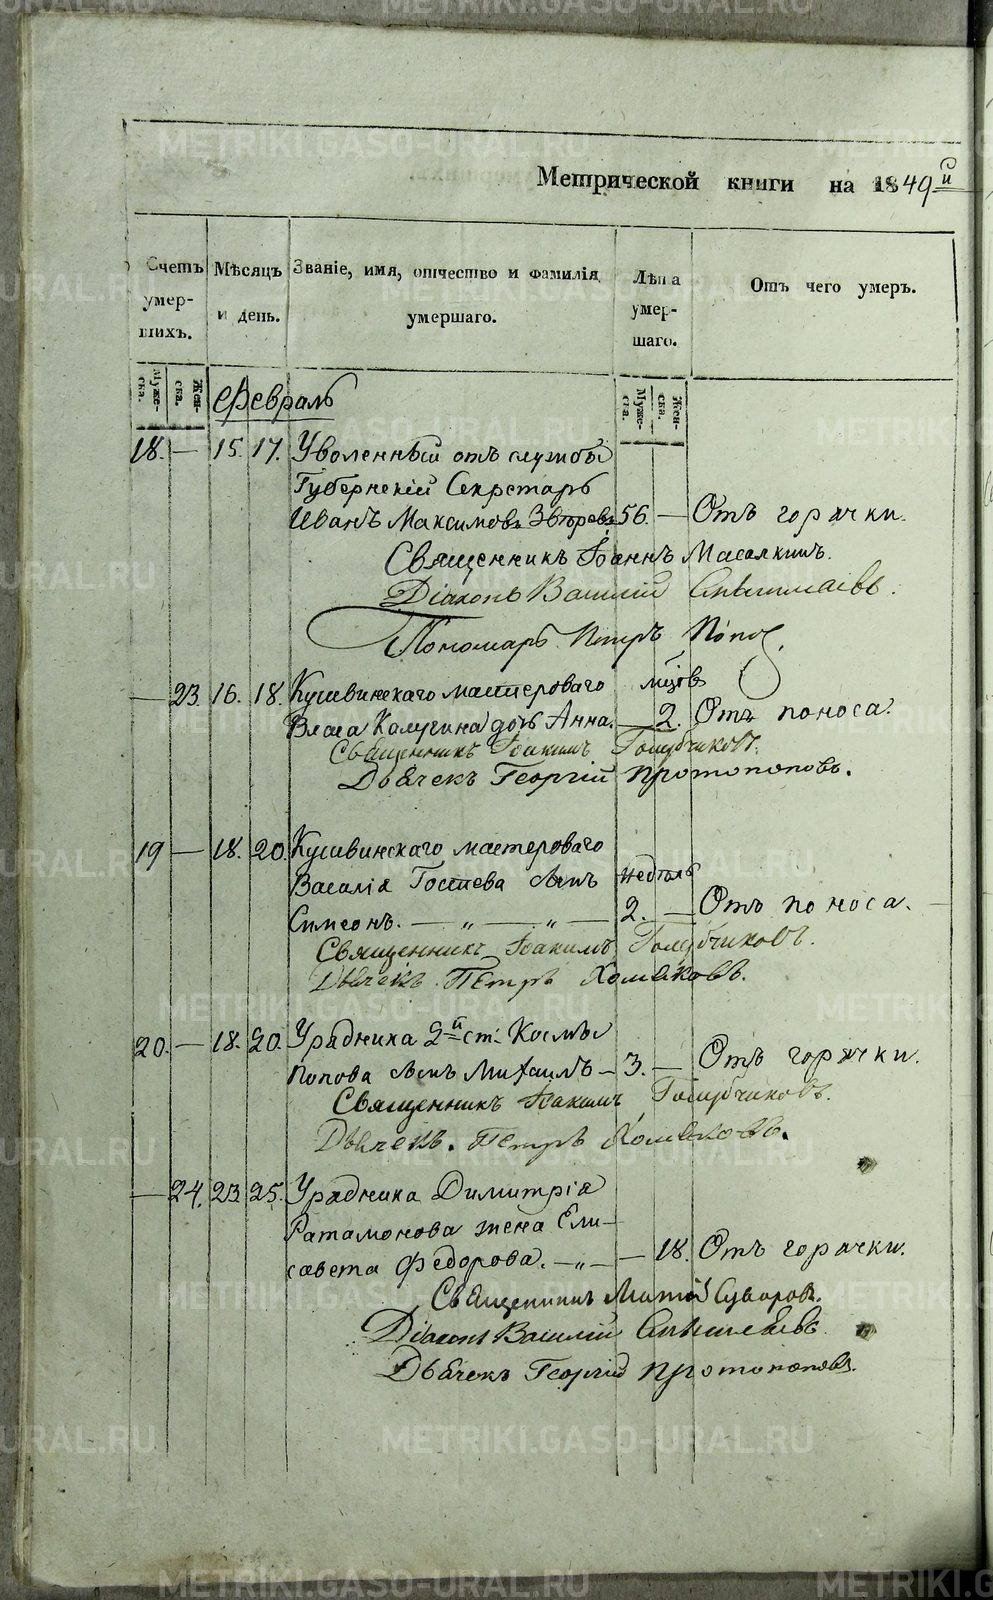 METRIKI.GASO-URAL.RU
Метрической книги на 1849й
Счетъ умер- шихъ.
Мѣсяцъ и день.
Званіе, имя, отчество и фамилія умершаго.
Лѣта умер- шаго.
Отъ чего умеръ.
Муже- ска. Жен- ска.
Муже- ска. Жен- ска.
Февраль
18. — 15. 17. Уволенный отъ службы
Губернскій Секретарь
Иванъ Максимовъ Звѣревъ 56. — Отъ горячки.
Священникъ Іоаннъ Масалкинъ.
Діаконъ Василій
Пономарь Петръ Попов
— 23. 16. 18. Кушвинскаго мастероваго мцов
Власа Калугина дочь Анна. — 2. Отъ поноса.
Священникъ Іоакимъ Голубчиковъ.
Дьячекъ Георгій Протопоповъ.
19 — 18. 20. Кушвинскаго мастероваго
Василія Гостева сынъ недѣль
Симеонъ. — „ — „ — 2. — Отъ поноса.
Священникъ Іоакимъ Голубчиковъ.
Дьячекъ Петръ Хомяковъ.
20. — 18. 20. Урядника 2й ст. Космы
Попова сынъ Михаилъ — 3. — Отъ горячки.
Священникъ Іоакимъ Голубчиковъ.
Дьячекъ. Петръ Хомяковъ.
— 24. 23 25. Урядника Димитрія
Ратамонова жена Ели-
савета Федорова. — „ — — 18. Отъ горячки.
Священникъ Суворовъ.
Діаконъ Василій
Дьячекъ Георгій Протопоповъ.